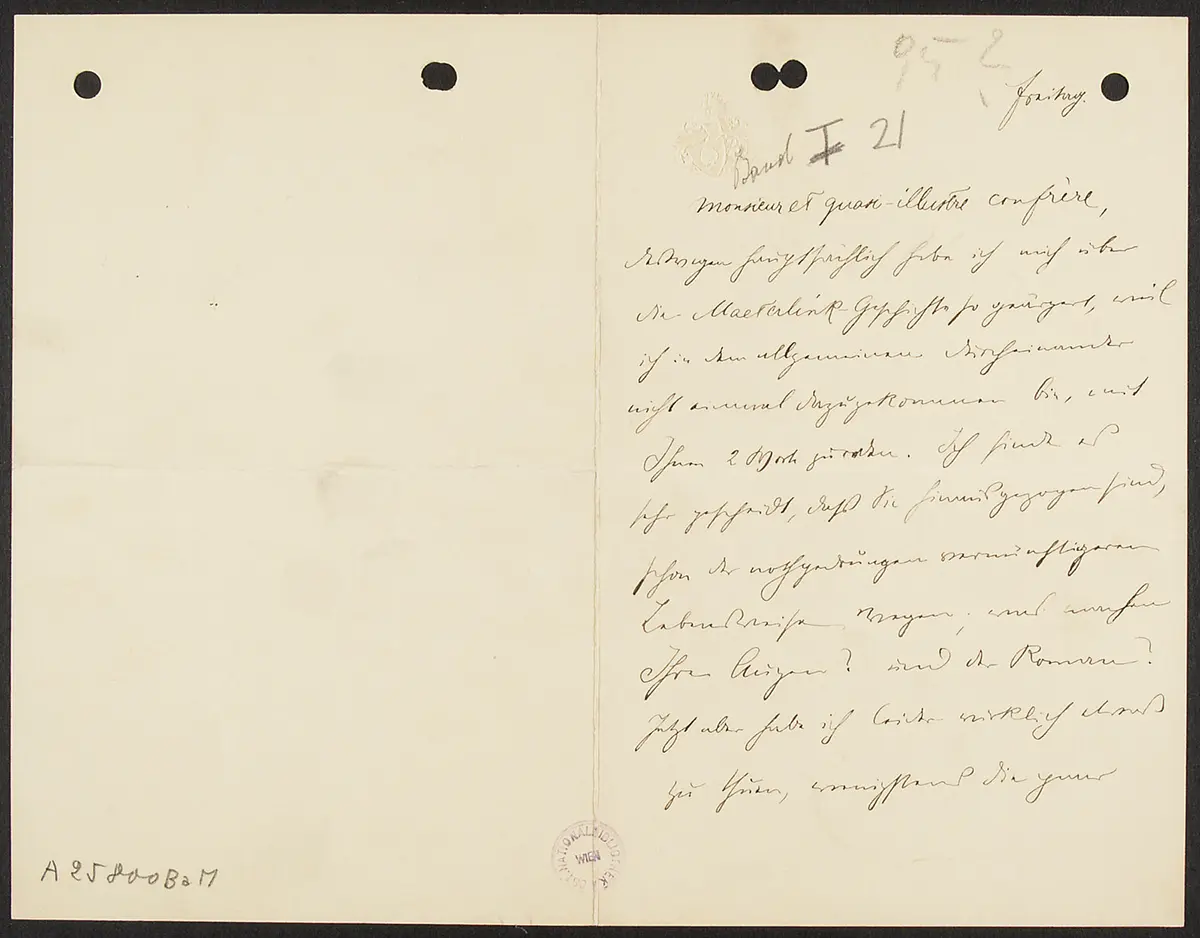 95 ?
Freitag.
Band I 21
Monsieur et quasi-illustre confrère,
deswegen hauptsächlich habe ich mich über
die Maeterlink-Geschichte so geärgert, weil
ich in dem allgemeinen Durcheinander
nicht einmal dazugekommen bin, mit
Ihnen 2 Worte zu reden. Ich finde es
sehr gescheidt, daß Sie hinausgezogen sind,
schon der nothgedrungen vernünftigeren
Lebensweise wegen; was machen
Ihre Augen? und der Roman?
Jetzt aber habe ich leider wirklich etwas
zu thuen, wenigstens die paar
A 25800 BaM
NATIONALBIBLIOTHEK
WIEN